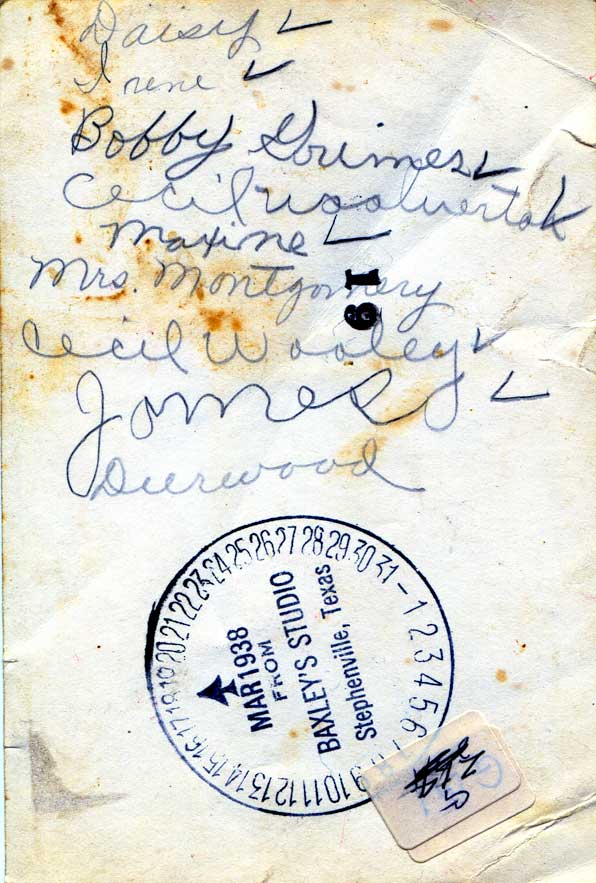 Daisy ✓
Irene ✓
Bobby Grimes ✓
Cecil Woolverton ✓
Maxine ✓
19
Mrs. Montgomery
Cecil Wooley ✓
James ✓
Durwood
1 2 3 4 5 6 9 10 11 12 13 14 15 16 17 18 19 20 21 22 23 24 25 26 27 28 29 30 31
MAR 1938
FROM
BAXLEY'S STUDIO
Stephenville, Texas